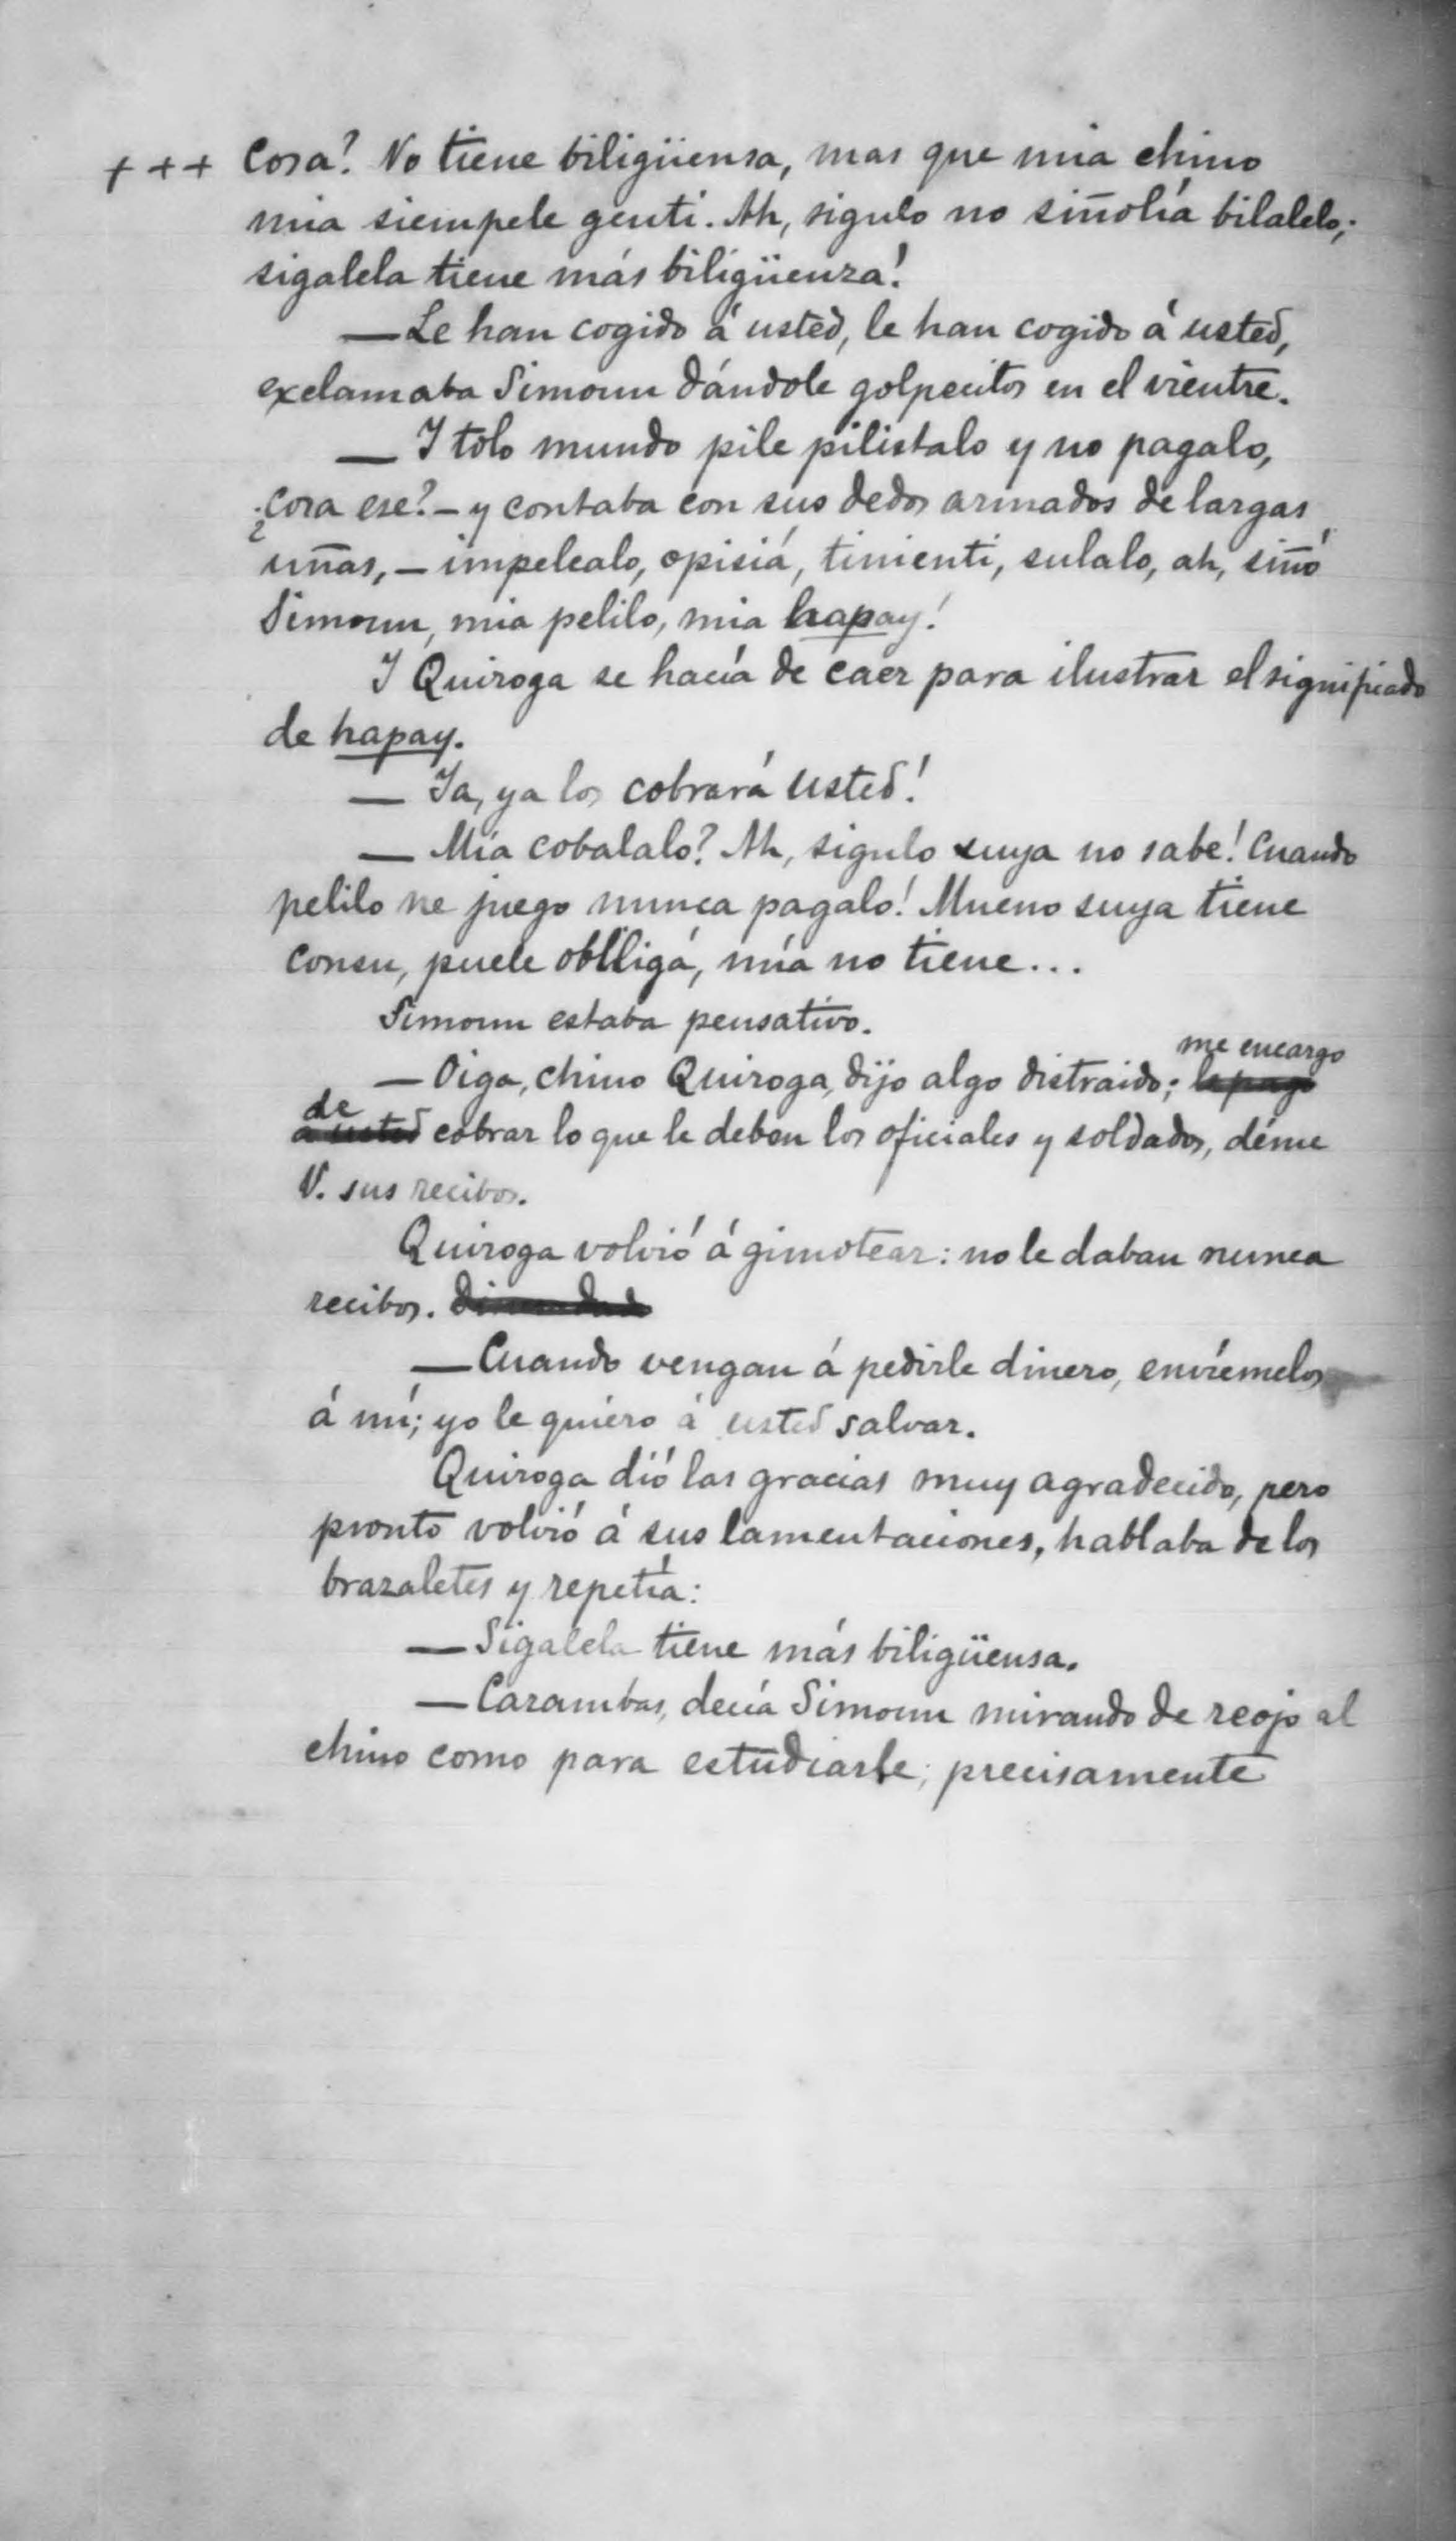 +++ Cosa? No tiene biligüensa, mas que mia chino
mia siempele genti. Ah, sigulo no siñolía bilalelo;
sigalela tiene más biligüenza!
— Le han cogido á usted, le han cogido á usted,
exclamaba Simoun dándole golpecitos en el vientre.
— Y tolo mundo pile pilistalo y no pagalo,
¿cosa ese? — y contaba con sus dedos armados de largas
uñas, — impelealo, opisiá, tinienti, sulalo, ah, siñó
Simoun, mia pelilo, mia hapay!
Y Quiroga se hacía de caer para ilustrar el significado
de hapay.
— Ya, ya los cobrará usted!
— Mía cobalalo? Ah, sigulo suya no sabe! Cuando
pelilo ne juego nunca pagalo! Mueno suya tiene
consu, puele obligá, mía no tiene...
Simoun estaba pensativo.
me encargo
— Oiga, chino Quiroga, dijo algo distraido; le pago
de
a usted cobrar lo que le deben los oficiales y soldados, déme
V. sus recibos.
Quiroga volvió á gimotear: no le daban nunca
recibos.
— Cuando vengan á pedirle dinero, envíemelos
á mí; yo le quiero á usted salvar.
Quiroga dió las gracias muy agradecido, pero
pronto volvió á sus lamentaciones, hablaba de los
brazaletes y repetía:
— Sigalela tiene más biligüensa.
— Carambas, decía Simoun mirando de reojo al
chino como para estudiarle; precisamente